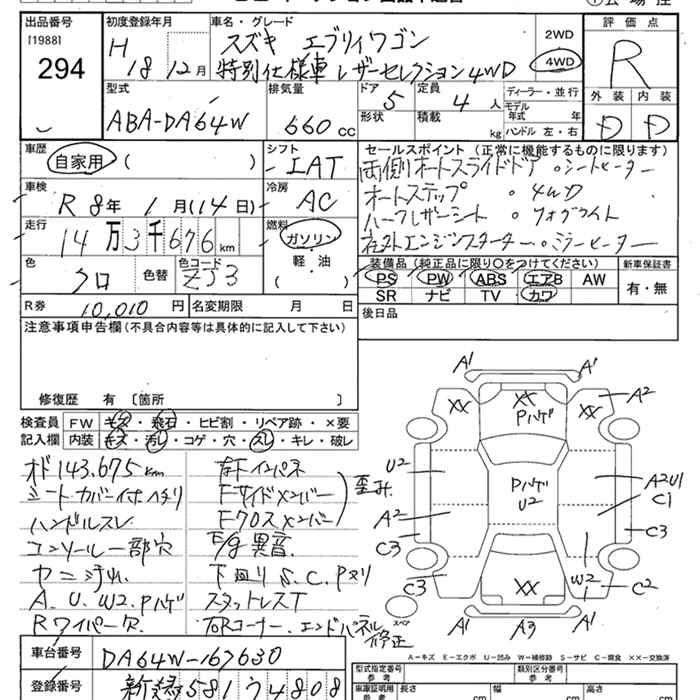 出品番号
[1988]
294
初度登録年月
H 18年12月
車名・グレード
スズキ エブリィワゴン
特別仕様車 レザーセレクション4WD
2WD
4WD
評価点
R
外装 内装
D D
型式
ABA-DA64W
排気量
660 cc
ドア 5
形状
定員 4 人
積載 kg
ディーラー・並行
モデル年式 年
ハンドル 左・右
車歴
自家用 ( )
シフト
IAT
セールスポイント (正常に機能するものに限ります)
両側オートスライドドア ・シートヒーター
オートステップ ・4WD
ハーフレザーシート ・フォグライト
社外エンジンスターター ・ミラーヒーター
車検
R 8年 1月(14日)
冷房
AC
走行
14万3千676km
燃料
ガソリン
軽・油
( )
色
クロ
色替
色コード
ZJ3
装備品 (純正品に限り○をつけてください)
PS PW ABS エアB AW
SR ナビ TV カワ
新車保証書
有・無
R券 10,010円
名変期限 月 日
後日品
注意事項申告欄(不具合内容等は具体的に記入して下さい)
修復歴 有 〔箇所 〕
検査員記入欄
FW キズ・飛石・ヒビ割・リペア跡・×要
内装 キズ・汚レ・コゲ・穴・スレ・キレ・破レ
オド143.675km
シートカバー付ハチリ
ハンドルスレ
コンソール一部穴
ヤニ汚れ
A.U.W2.Pハゲ
Rワイパー欠
右Fインパネ
Fサイドメンバー
Fクロスメンバー
歪み
E/g異音
下廻りS.C.Pヌリ
スタットレスT
右Rコーナー.エンドパネル修正
A1 A1
XX XX XX
Pハゲ
A2
U2
Pハゲ
U2
A2U1
C1
A2
C3 C3
C3
W2
C2
XX
スペア
A1 A3 A1
A-キズ E-エクボ U-凹み W-補修跡 S-サビ C-腐食 ××-交換済
車台番号
DA64W-167630
登録番号
新潟581 う4808
型式指定番号
類別区分番号
車庫証明用参考
長さ cm
幅 cm
高さ cm
参考